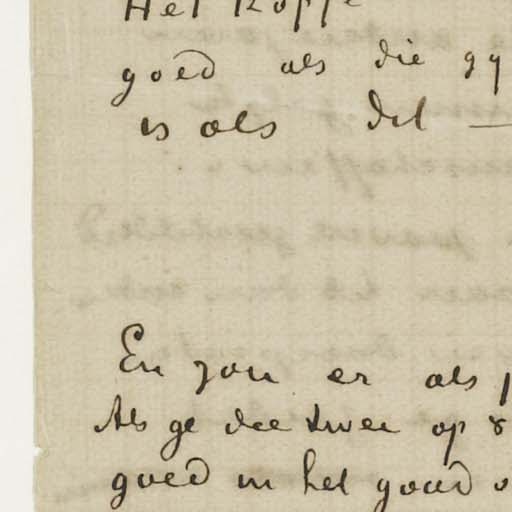 Het kopje
goed als die gy
is als dit —
En zou er als
Als ge die twee op
goed in het goud